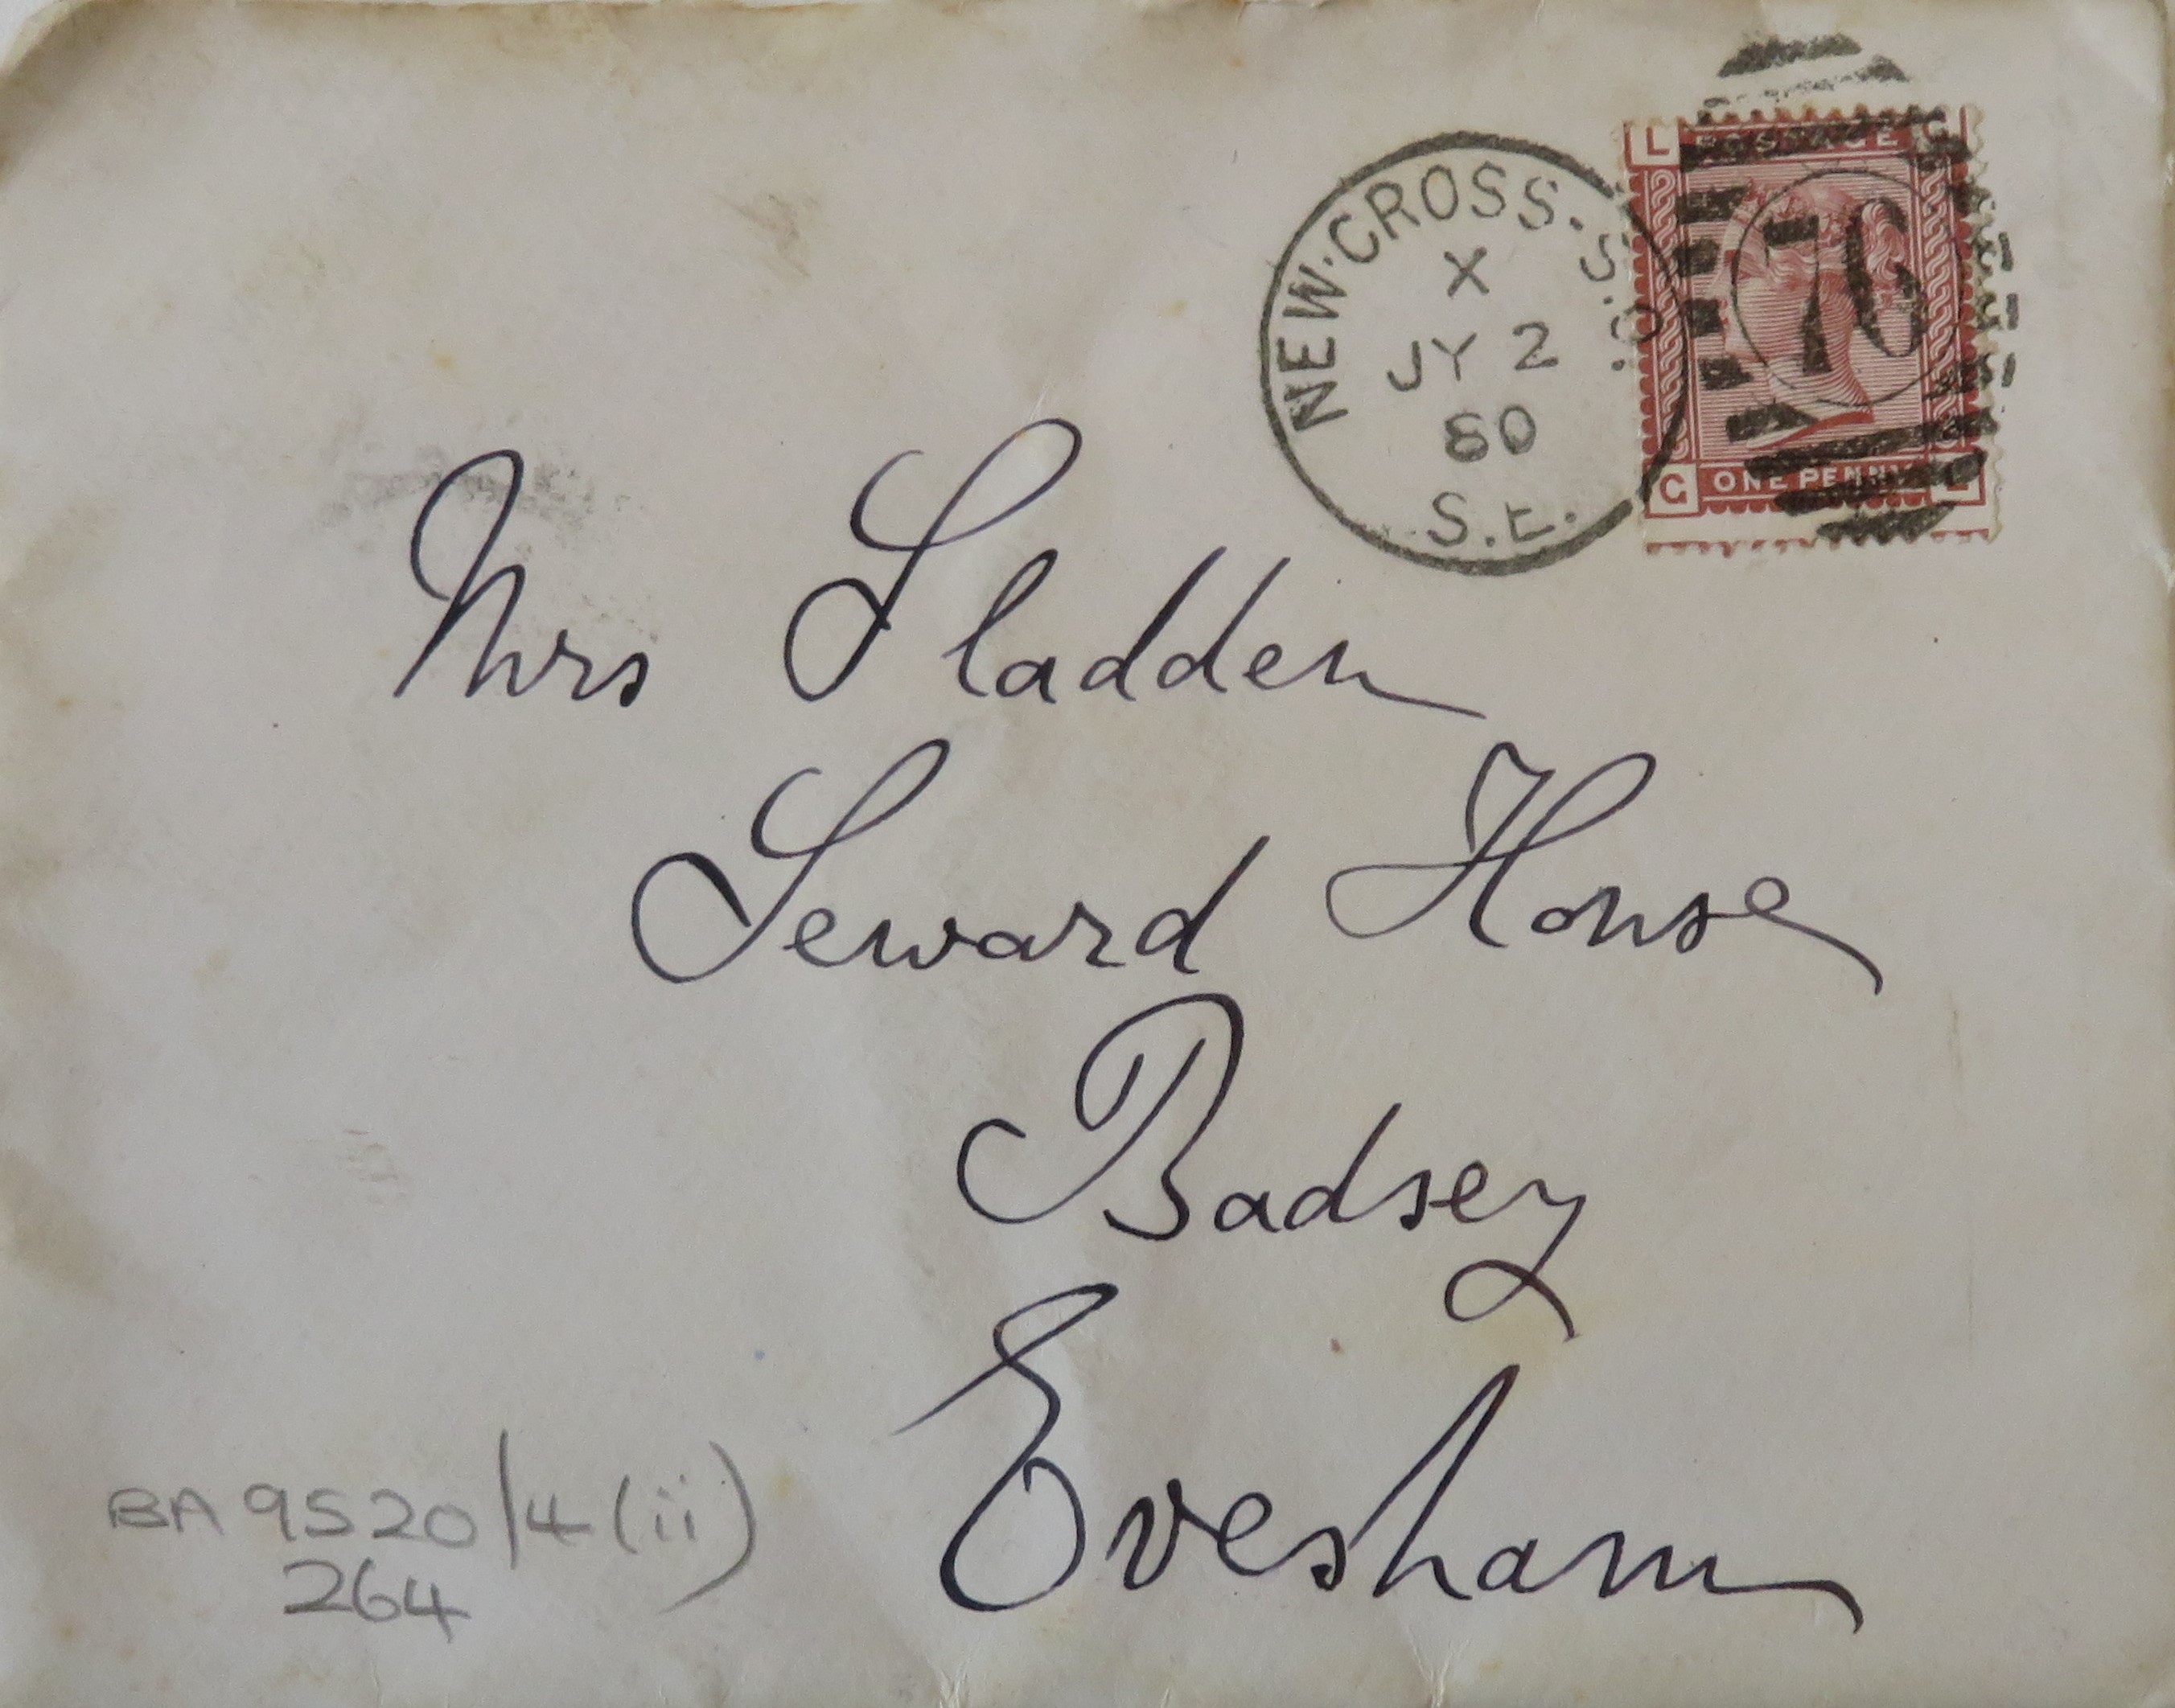 L POSTAGE G
NEW·CROSS·S.O.
X
JY 2
80
S.E.
76
G ONE PENNY L
Mrs Sladden
Seward House
Badsey
Evesham
BA 9520/4(ii)
264